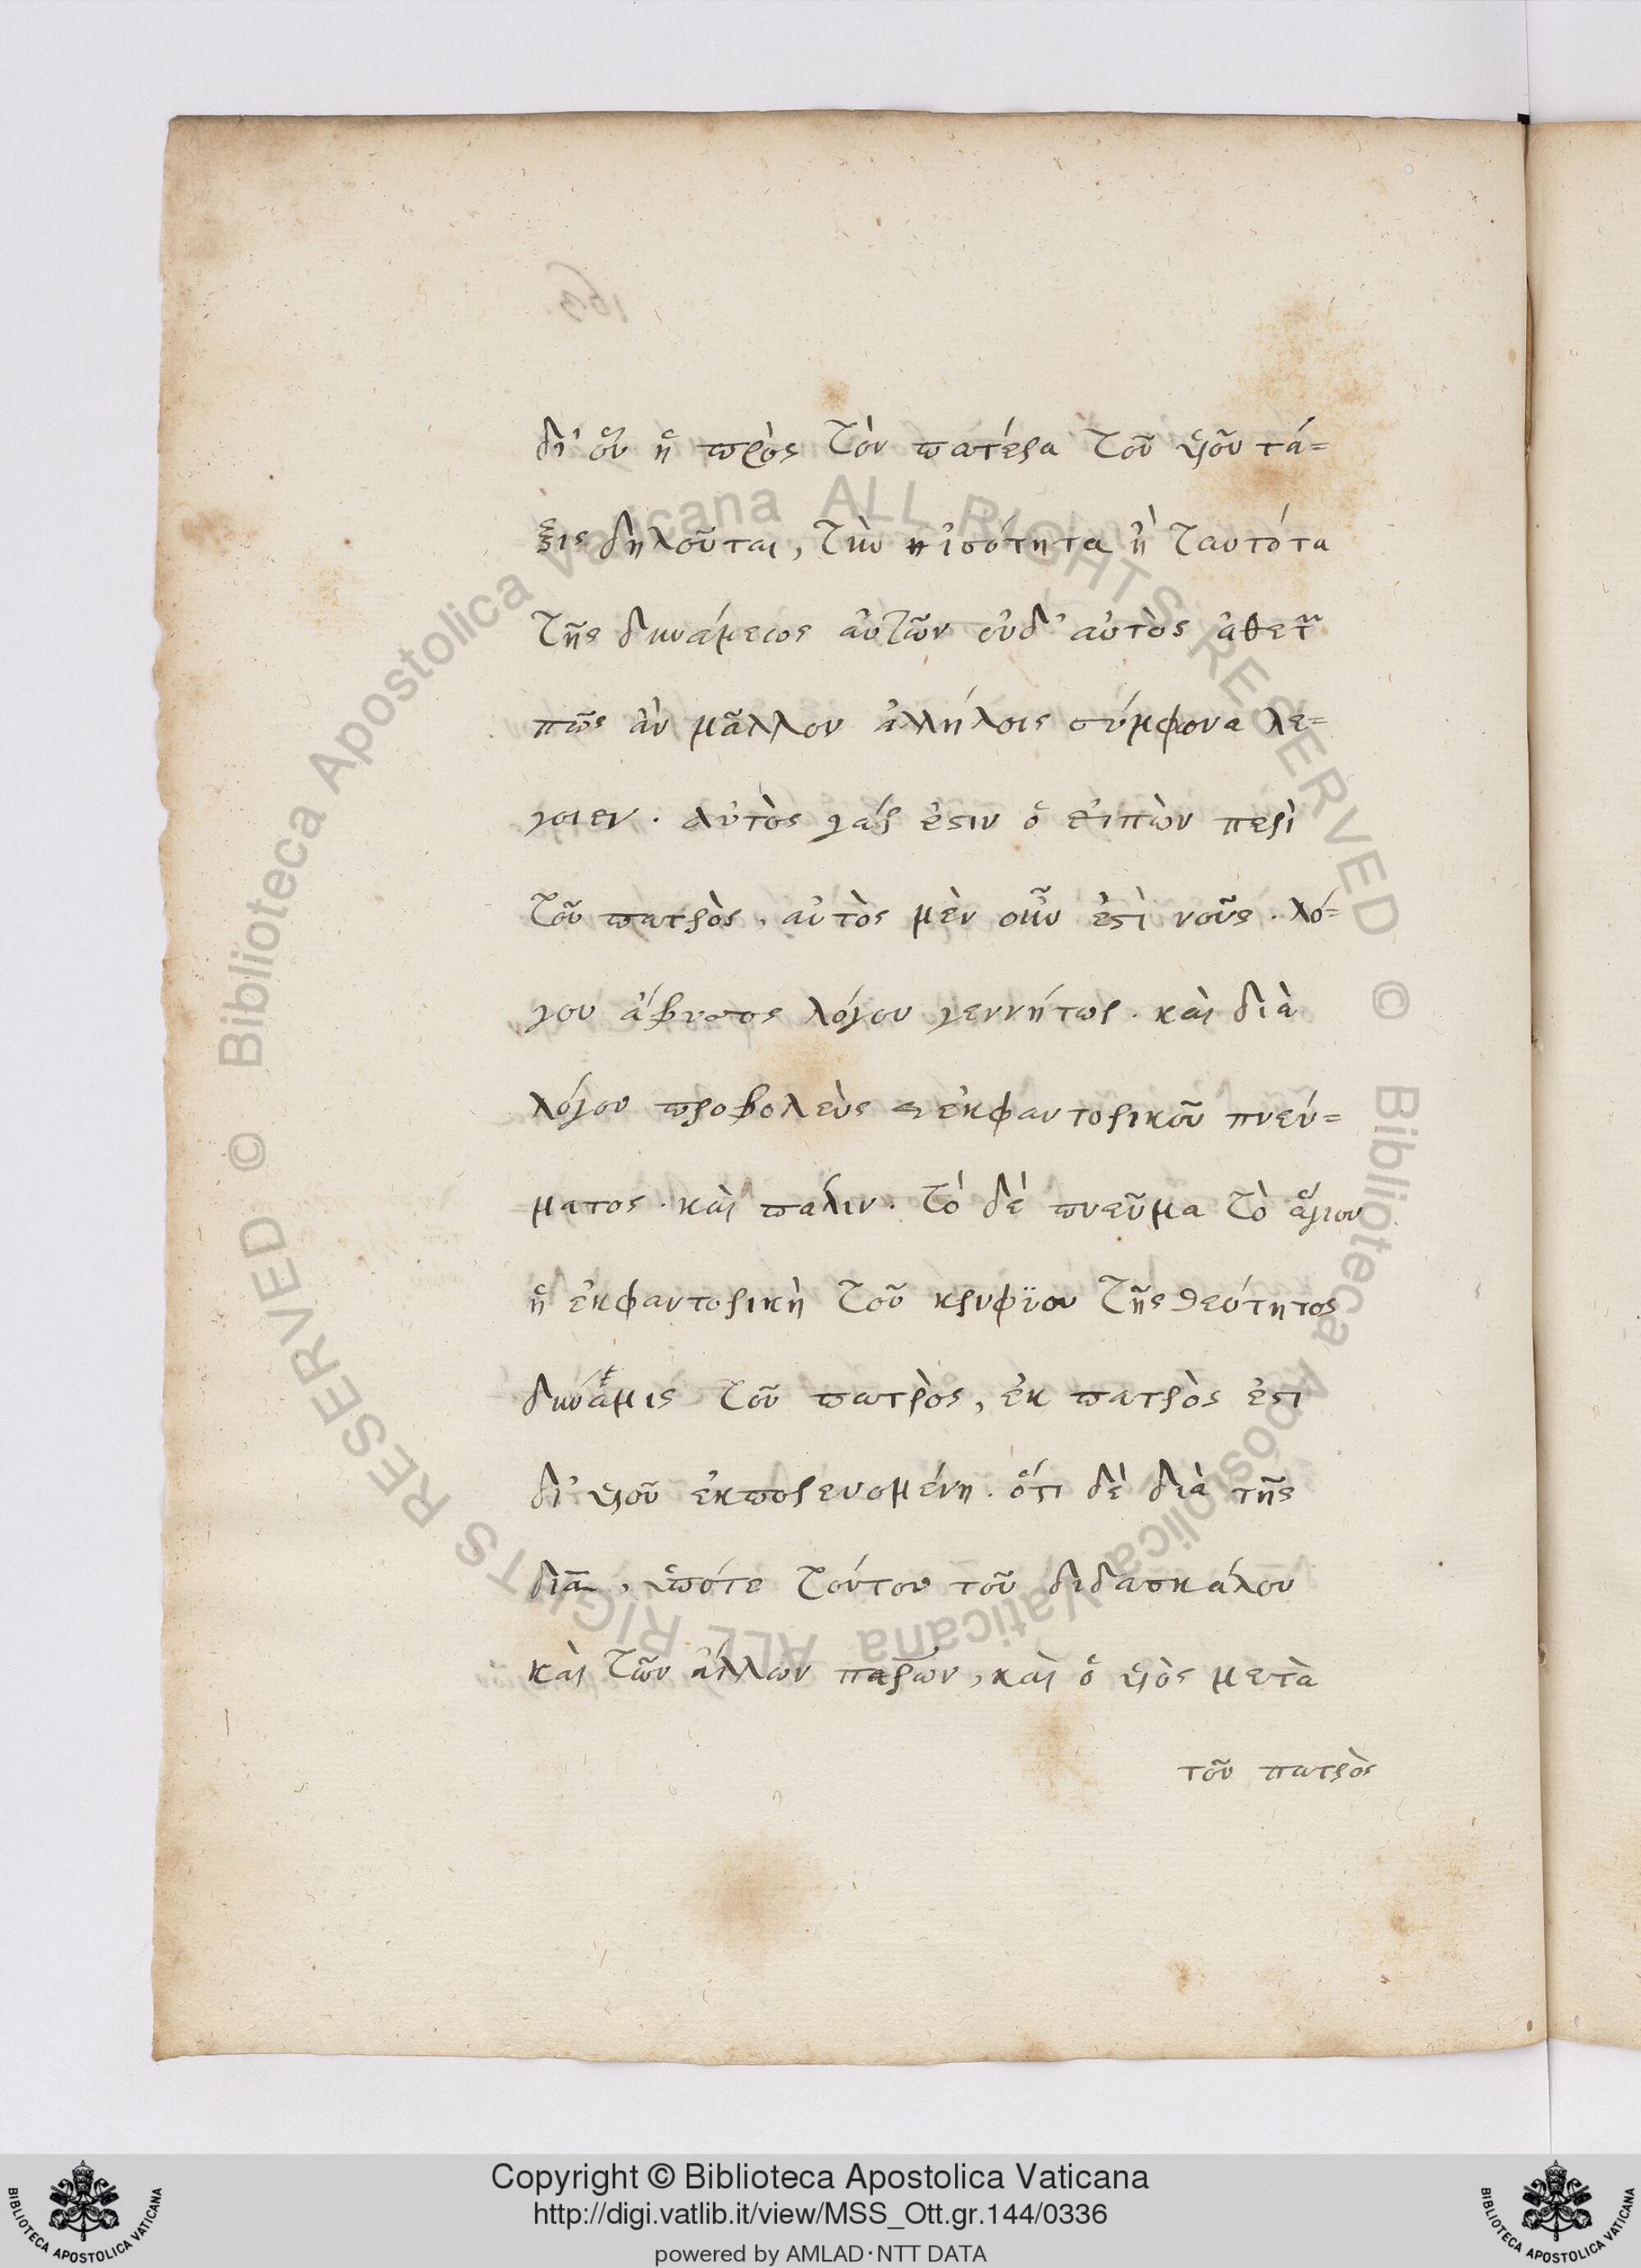 δι' οὗ ἡ πρὸς τὸν πατέρα τοῦ υἱοῦ τά=
ξις δηλοῦται, τὴν ἰσότητα ἢ ταυτότα
τῆς δυνάμεως αὐτῶν οὐδ' αὐτὸς ἀθετ͂
πῶς ἂν μᾶλλον ἀλλήλοις σύμφονα λε=
γοιεν. αὐτὸς γάρ ἐστιν ὁ εἰπὼν περὶ
τοῦ πατρὸς, αὐτὸς μὲν οὖν ἐστὶ νοῦς. λό=
γου ἄβυσσος λόγου γεννήτωρ. καὶ διὰ
λόγου προβολεὺς ἐκφαντορικοῦ πνεύ=
ματος. καὶ πάλιν. τὸ δὲ πνεῦμα τὸ ἅγιον
ἡ ἐκφαντορικὴ τοῦ κρυφΐου τῆς θεότητος
δυνάμις τοῦ πατρὸς, ἐκ πατρὸς ἐστι
δι' υἱοῦ ἐκπορευομένη. ὅτι δὲ διὰ τῆς
διὰ, ὑπότε τούτου τοῦ διδασκάλου
καὶ τῶν ἄλλων πατέρων, καὶ ὁ υἱὸς μετὰ
τοῦ πατρὸς
Copyright © Biblioteca Apostolica Vaticana
http://digi.vatlib.it/view/MSS_Ott.gr.144/0336
powered by AMLAD·NTT DATA
BIBLIOTECA APOSTOLICA VATICANA
BIBLIOTECA APOSTOLICA VATICANA
© Biblioteca Apostolica Vaticana ALL RIGHTS RESERVED © Biblioteca Apostolica Vaticana ALL RIGHTS RESERVED